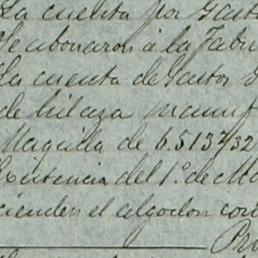 La cuenta por Gasto
se abonaron á la Fabri
La cuenta de Gastos
de hilaza manuf
Maquilla de 6.513 7/32
Existencia del 1º de Ma
cienden el algodon con